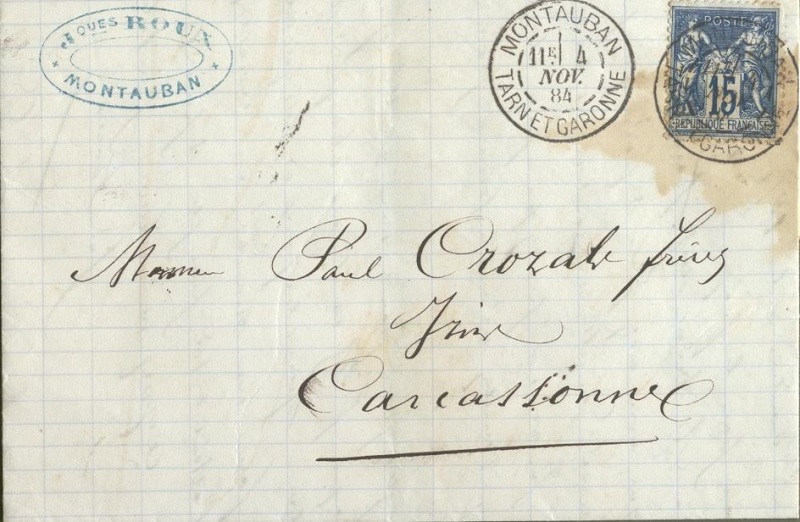 JQUES ROUX
MONTAUBAN
MONTAUBAN
11E 4
NOV.
84
TARN ET GARONNE
POSTE
15
REPUBLIQUE FRANÇAISE
Paul Crozals frères
Carcassonne